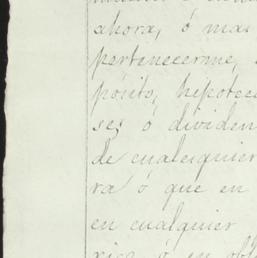 ahora, ó mas
pertenecerme,
pósito, hipotec
ses ó dividen
de cualesquier
ra ó que en
en cualquier
ó en obl